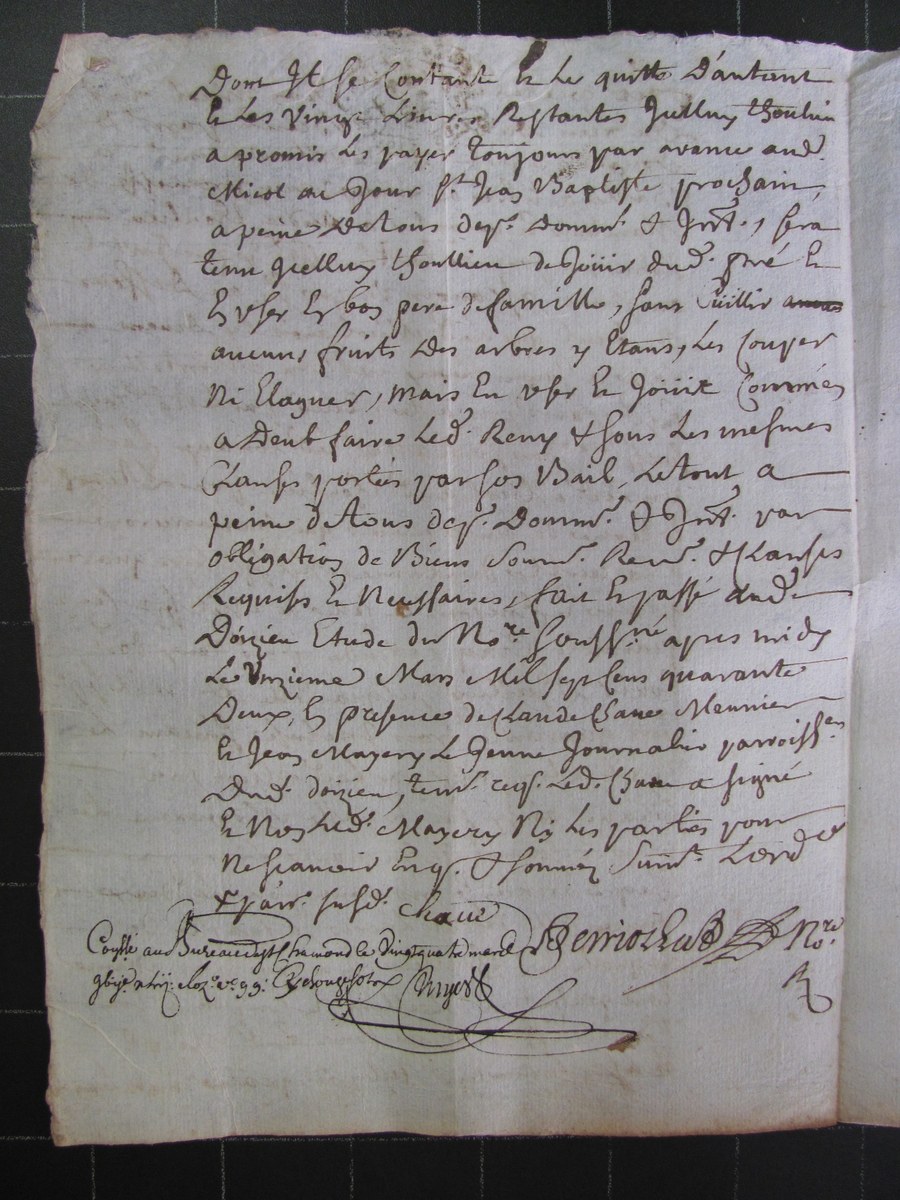 Dont Il se Contant & Le quitte D'autant
& Les vingt Livres Restantes Jcelluy thoulieu
a promis Les payer toujours par avance aud.
Micol au Jour St. Jean Baptiste prochain,
a peine De tous dep. Domm. & Int., sera
tenu Jcelluy thoullieu de Joüir dud. pré &
En user En bon pere de famille, sans Cuillir
aucuns fruits des arbres y Etans, Les Couper
Ni Elaguer, mais En user & Joüir Comme
a deub faire Led. Remy & sous Les mesmes
Clauses portées par son Bail, Le tout a
peine de tous dep. Domm. & Int. par
obligation de Biens Soum. Ren. & Clauses
Requises & Necessaires, fait & passé aud.
Doizieu Etude du No.re souss.né apres midy
Le Unzieme Mars Mil sept Cens quarante
Deux, En presence de Claude Chave Meunier
& Jean Mayery Le Jeune Journalier parroiss.ens
Dud. doizieu, tem. req. Led. Chave a signé
& Non Led. Mayery Ny Les parties pour
Ne sçavoir Enq. & sommés Suiv. L'ord.e
Chave No.re
au Bureau de St Chamond le Vingt quatre mars